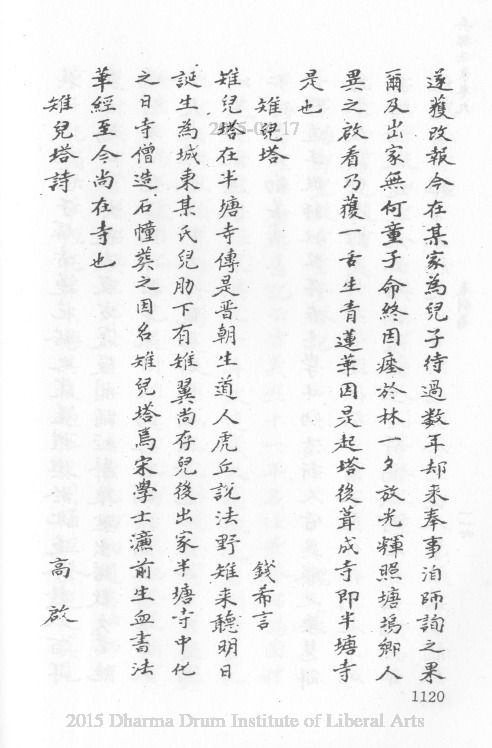 遂獲改報令在某家為兒子待過数年却来奉事洎師詢之果
爾及出家無何童子命終因瘞於林一夕放光輝照塘塢鄉人
異之啟看乃獲一舌生青蓮華因是起塔後葺成寺即半塘寺
是也
雉兒塔 錢希言
雉兒塔在半塘寺傳是晋朝生道人虎丘說法野雉来聽明日
誕生為城東某氏兒肋下有雉翼尚存兒後出家半塘寺中化
之日寺僧造石幢葬之因名雉兒塔焉宋學士濂前生血書法
華經至今尚在寺也
雉兒塔詩 高啟
1120
2015 Dharma Drum Institute of Liberal Arts